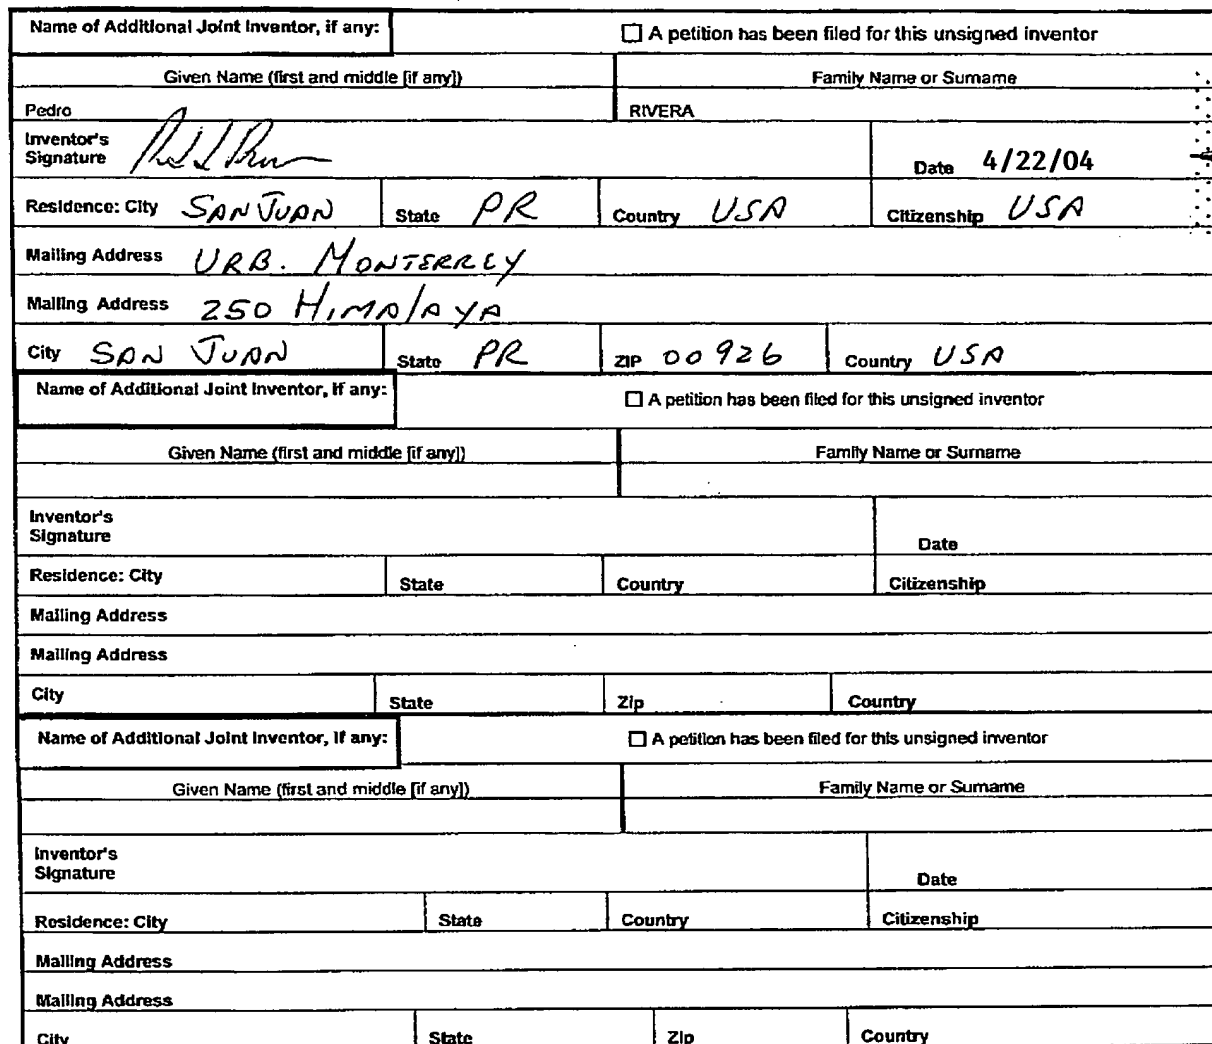 Name of Additional Joint Inventor, if any: ☐ A petition has been filed for this unsigned inventor
Given Name (first and middle [if any]) Family Name or Surname
Pedro RIVERA
Inventor's
Signature Date 4/22/04
Residence: City SAN JUAN State PR Country USA Citizenship USA
Mailing Address URB. MONTERREY
Mailing Address 250 HIMALAYA
City SAN JUAN State PR ZIP 00926 Country USA
Name of Additional Joint Inventor, if any: ☐ A petition has been filed for this unsigned inventor
Given Name (first and middle [if any]) Family Name or Surname
Inventor's
Signature Date
Residence: City State Country Citizenship
Mailing Address
Mailing Address
City State Zip Country
Name of Additional Joint Inventor, if any: ☐ A petition has been filed for this unsigned inventor
Given Name (first and middle [if any]) Family Name or Surname
Inventor's
Signature Date
Residence: City State Country Citizenship
Mailing Address
Mailing Address
City State Zip Country